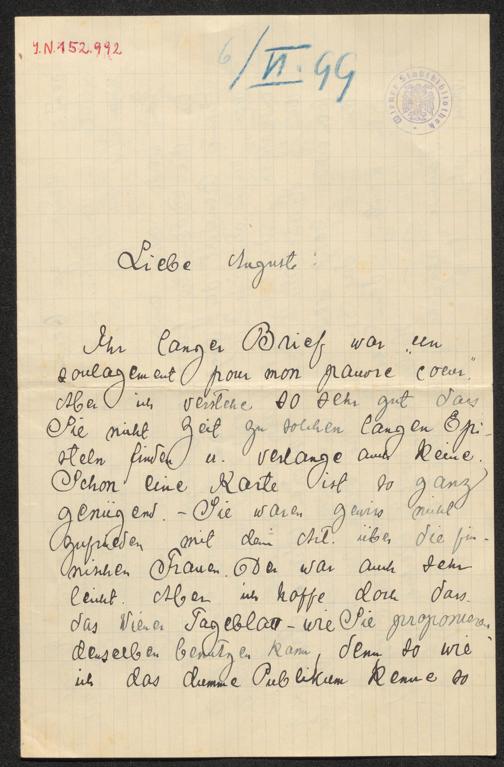 J.N. 152.992
6/VI. 99
Wiener Stadtbibliothek
Liebe Auguste!
Ihr langer Brief war "un
soulagement pour mon pauvre coeur".
Aber ich verstehe so sehr gut dass
Sie nicht Zeit zu solchen langen Epi-
steln finden u. verlange auch keine.
Schon eine Karte ist so ganz
genügend. - Sie waren gewiss nicht
zufrieden mit dem Art. über die fin-
nischen Frauen. Der war auch sehr
leicht. Aber ich hoffe doch dass
das Wiener Tageblatt - wie Sie proponieren
denselben benützen kann, denn so wie
ich das dumme Publikum kenne so